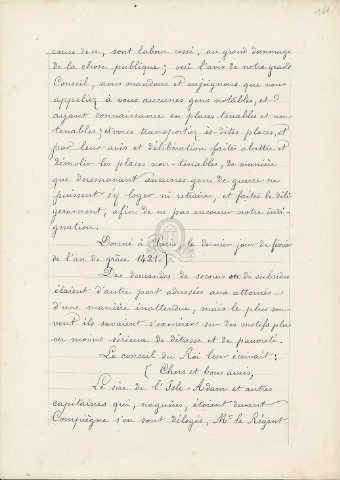 161
cause de ce, sont labour cessé, au grand dommage
de la chose publique; veü l'avis de notre grand
Conseil, nous mandons et enjoignons que vous
appeliez à vous aucunes gens notables, et
ayant connaissance en places tenables et non
tenables; et vous transportiez ès-dites places, et
par leur avis et délibération faites abattre et
démolir les places non-tenables, de manière
que doresnavant aucunes gens de guerre ne
puissent s'y loger ni retraire, et faites le dili-
gemment, afin de ne pas encourir notre indi-
gnation.
Donné à Paris le dernier jour de février
de l'an de grâce 1421.)
Des demandes de secours et de subsides
étaient d'autre part adressées aux attornés
d'une manière inattendue, mais le plus sou-
vent ils savaient s'exonérer sur des motifs plus
ou moins sérieux de détresse et de pauvreté.
Le conseil du Roi leur écrivait:
( Chers et bons amis,
Le sire de l'Isle-Adam et autres
capitaines qui, naguères, étoient devant
Compiègne s'en sont délogés, Mr. le Régent